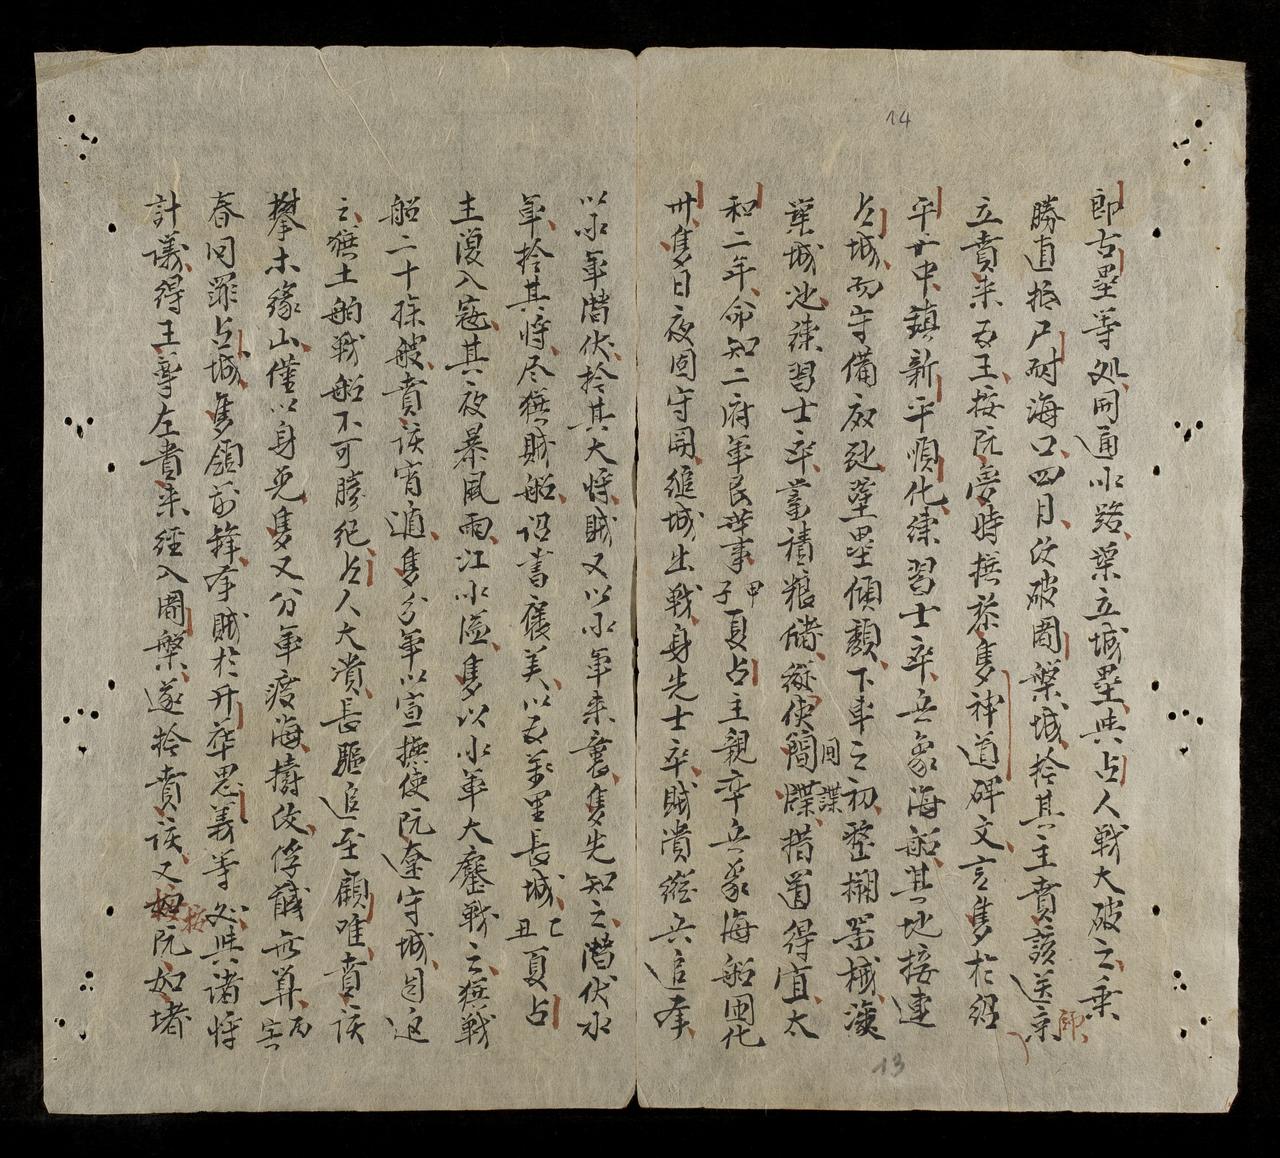 14
郎古壘等处開通水路築立城壘與占人戰大破之乘
勝直抵尸耐海口四月攻破闍槃城擒其主賁該送京
師
立賁来為王按阮旁時撰恭隻神道碑文言隻於紹
平廿中鎮新平順化練習士卒兵象海船其地接連
占城而守備廢弛壘壘傾頹下車之初整搠器械濬
築城池練習士卒蓄積粮儲縱使簡牒措道得宜太
間諜
和二年命知二府軍民䒭事甲子夏占主親率兵象海船圍化
卅隻日夜固守開縋城出戰身先士卒賊潰縱兵追拿
13
以水軍潛伏擒其大將賊又以水軍来襲隻先知之潛伏水
軍擒其將尽獲賊船詔書褒美以為萬里長城乙丑夏占
主復入寇其夜暴風雨江水溢隻以水軍大鏖戰之獲戰
船二十餘艘賁該宵遁隻分軍以宣撫使阮 守城自追
之獲土舶戰船不可勝紀占人大潰長驅追至顧唯賁該
攀木緣山僅以身免隻又分軍渡海擣伐俘馘無算丙寅
春同罪占城隻領前鋒拿賊於升華思義等处與諸將
計議得王尊左賁来經入闍槃遂擒賁該又按阮如堵
按